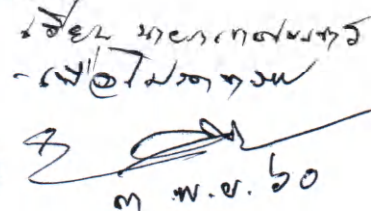 เรียน นายกเทศมนตรี
- เพื่อโปรดทราบ
๓ พ.ย. ๖๐